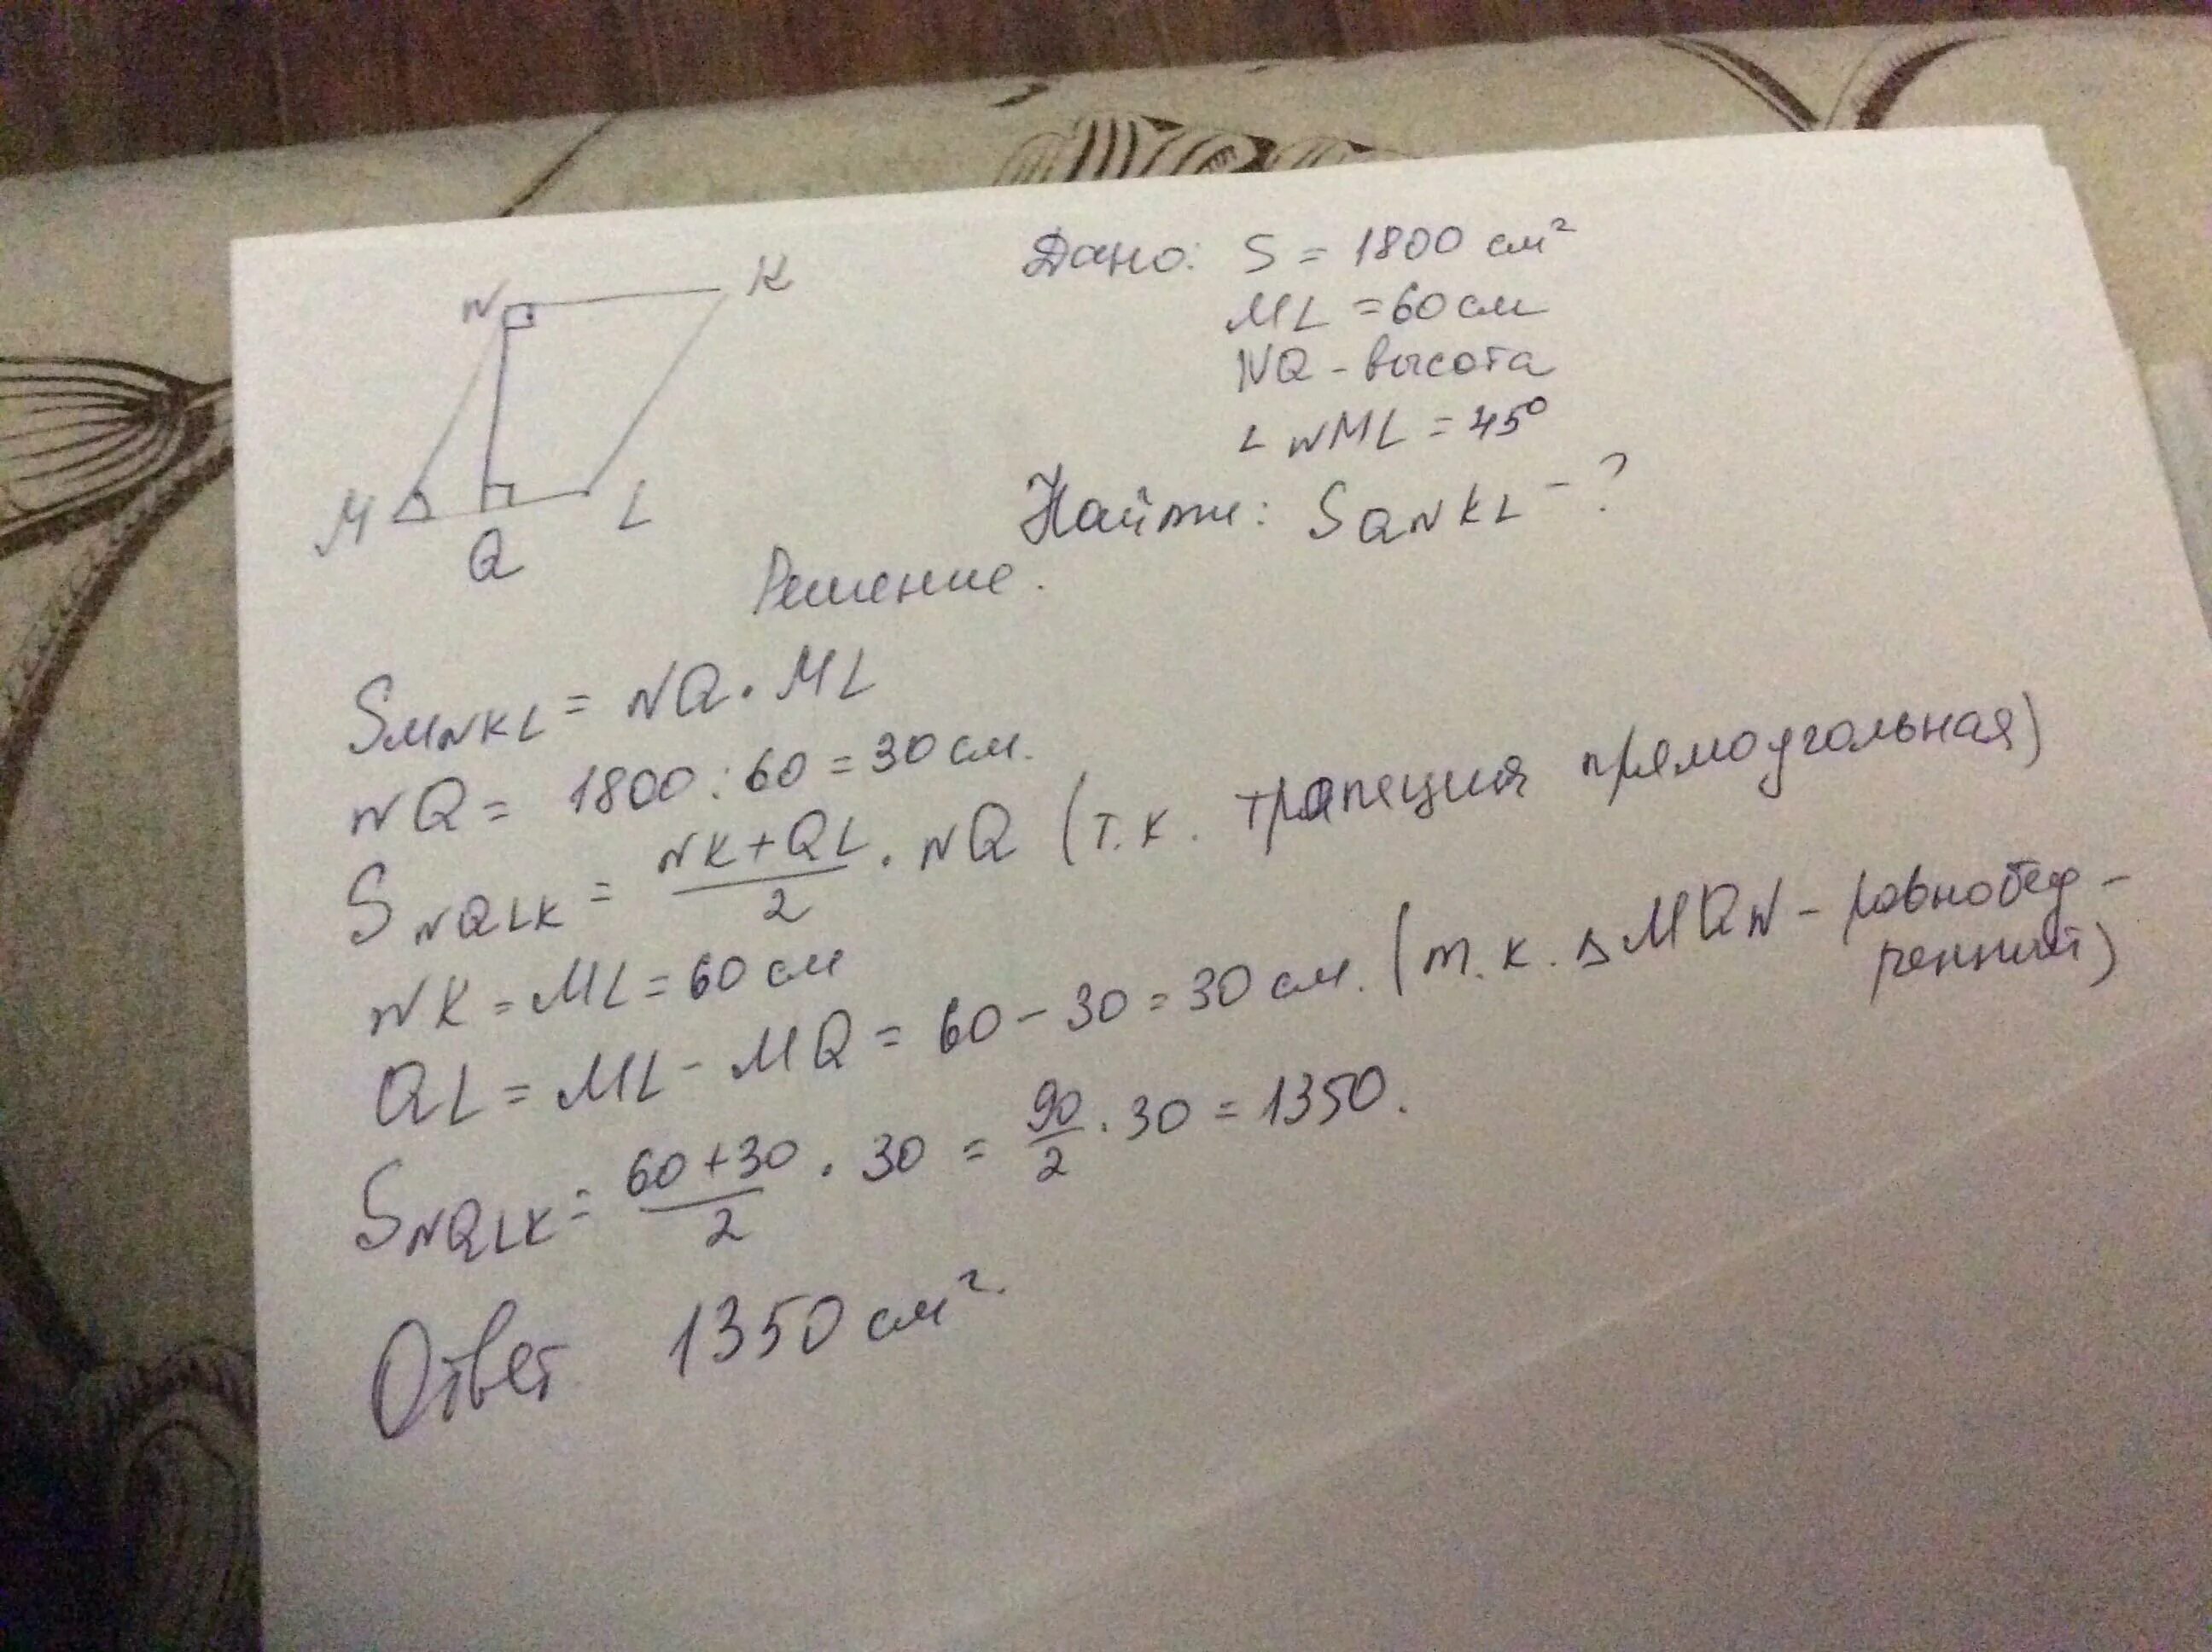 N K
M Q L
Дано: S = 1800 см²
ML = 60 см
NQ - высота
∠ NML = 45°
Найти: S QNKL - ?
Решение.
S MNKL = NQ · ML
NQ = 1800 : 60 = 30 см.
S NQLK = (NK + QL)/2 · NQ (т.к. трапеция прямоугольная)
NK = ML = 60 см
QL = ML - MQ = 60 - 30 = 30 см. (т.к. Δ MQN - равнобед-
ренный)
S NQLK = (60 + 30)/2 · 30 = 90/2 · 30 = 1350.
Ответ 1350 см².